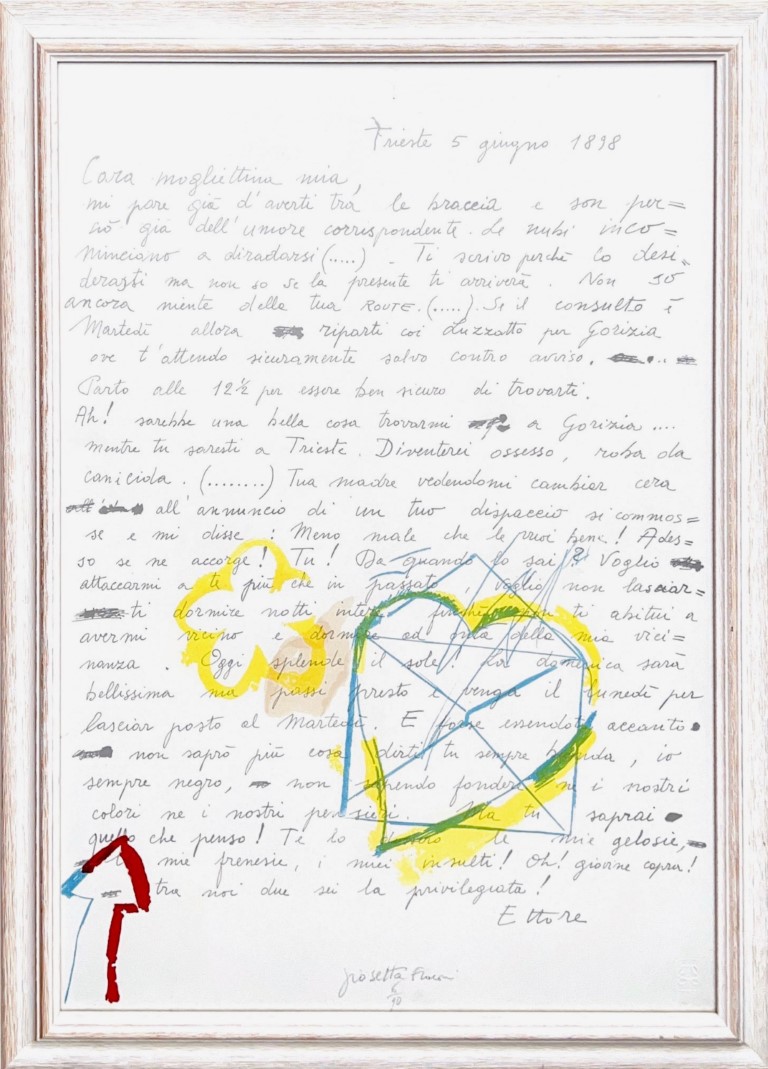 Trieste 5 giugno 1898
Cara mogliettina mia,
mi pare già d'averti tra le braccia e son per=
ciò già dell'umore corrispondente. Le nubi inco=
minciano a diradarsi (.....). Ti scrivo perchè lo desi=
derasti ma non so se la presente ti arriverà. Non so
ancora niente della tua ROUTE. (.....). Se il consulto è
Martedì allora riparti coi Luzzatto per Gorizia
ove t'attendo sicuramente salvo contro avviso.
Parto alle 12½ per essere ben sicuro di trovarti.
Ah! sarebbe una bella cosa trovarmi a Gorizia ....
mentre tu saresti a Trieste. Diventerei ossesso, roba da
canicida. (........) Tua madre vedendomi cambiar cera
all'annuncio di un tuo dispaccio si commos=
se e mi disse : Meno male che le vuoi bene! Ades=
so se ne accorge! Tu! Da quando lo sai? Voglio
attaccarmi a te più che in passato, voglio non lasciar=
ti dormire notti intere finchè non ti abitui a
avermi vicino e dormire ad onta della mia vici=
nanza. Oggi splende il sole! La domenica sarà
bellissima ma passi presto e venga il lunedì per
lasciar posto al Martedì. E forse essendoti accanto
non saprò più cosa dirti, tu sempre bionda, io
sempre negro, non sapendo fondere nè i nostri
colori nè i nostri pensieri. Ma tu saprai
quello che penso! Te lo le mie gelosie,
mie frenesie, i miei insulti! Oh! giovine capra!
tra noi due sei la privilegiata!
Ettore
Giosetta Fioroni
6/90